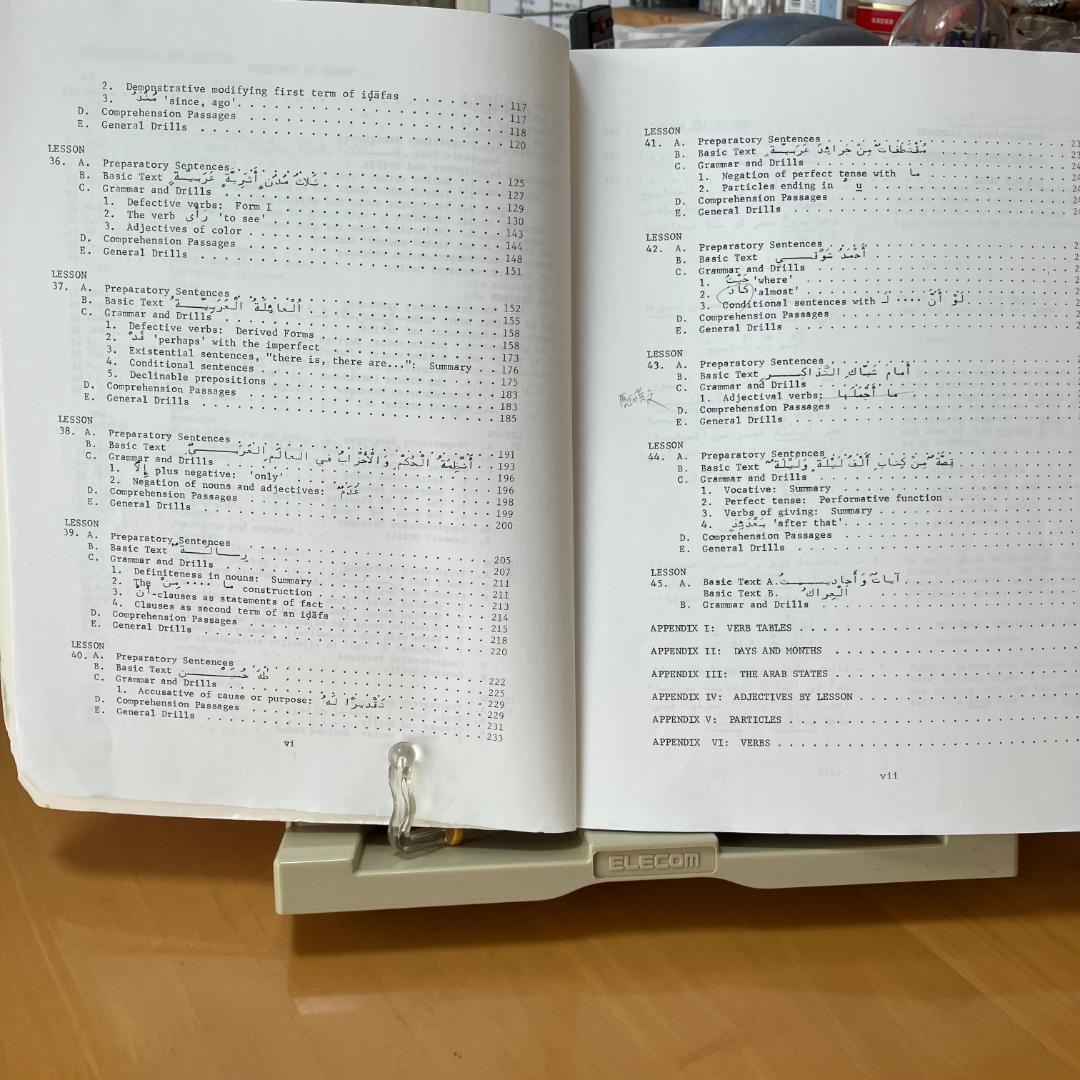 2. Demonstrative modifying first term of iḍāfas . . . . . . . . 117
3. مُنْذُ 'since, ago' . . . . . . . . 117
D. Comprehension Passages . . . . . . . . 118
E. General Drills . . . . . . . . 120
LESSON
36. A. Preparatory Sentences . . . . . . . . 125
B. Basic Text ثَلاثُ مُدُنٍ أَثَرِيَّةٍ عَرَبِيَّةٍ . . . . . . . . 127
C. Grammar and Drills . . . . . . . . 129
1. Defective verbs: Form I . . . . . . . . 130
2. The verb رَأى 'to see' . . . . . . . . 143
3. Adjectives of color . . . . . . . . 144
D. Comprehension Passages . . . . . . . . 148
E. General Drills . . . . . . . . 151
LESSON
37. A. Preparatory Sentences . . . . . . . . 152
B. Basic Text اَلْعائِلَةُ الْعَرَبِيَّةُ . . . . . . . . 155
C. Grammar and Drills . . . . . . . . 158
1. Defective verbs: Derived Forms . . . . . . . . 158
2. قَدْ 'perhaps' with the imperfect . . . . . . . . 173
3. Existential sentences, "there is, there are...": Summary . . 176
4. Conditional sentences . . . . . . . . 175
5. Declinable prepositions . . . . . . . . 183
D. Comprehension Passages . . . . . . . . 183
E. General Drills . . . . . . . . 185
LESSON
38. A. Preparatory Sentences . . . . . . . . 191
B. Basic Text أَنْظِمَةُ الْحُكْمِ وَالْأَحْزابُ في الْعالَمِ الْعَرَبِيِّ . . 193
C. Grammar and Drills . . . . . . . . 196
1. إِلّا plus negative: 'only' . . . . . . . . 196
2. Negation of nouns and adjectives: عَدَمُ . . . . . . . . 198
D. Comprehension Passages . . . . . . . . 199
E. General Drills . . . . . . . . 200
LESSON
39. A. Preparatory Sentences . . . . . . . . 205
B. Basic Text رِسالَةٌ . . . . . . . . 207
C. Grammar and Drills . . . . . . . . 211
1. Definiteness in nouns: Summary . . . . . . . . 211
2. The مِنْ .... ما construction . . . . . . . . 213
3. أَنَّ-clauses as statements of fact . . . . . . . . 214
4. Clauses as second term of an iḍāfa . . . . . . . . 215
D. Comprehension Passages . . . . . . . . 218
E. General Drills . . . . . . . . 220
LESSON
40. A. Preparatory Sentences . . . . . . . . 222
B. Basic Text طٰهَ حُسَيْن . . . . . . . . 225
C. Grammar and Drills . . . . . . . . 229
1. Accusative of cause or purpose: تَقْديرًا لَهُ . . . . . . . . 229
D. Comprehension Passages . . . . . . . . 231
E. General Drills . . . . . . . . 233
vi
LESSON
41. A. Preparatory Sentences . . . . . . . .
B. Basic Text مُقْتَطَفاتٌ مِنْ جَرائِدَ عَرَبِيَّةٍ . . . . . . . .
C. Grammar and Drills . . . . . . . .
1. Negation of perfect tense with ما . . . . . . . .
2. Particles ending in ُ u . . . . . . . .
D. Comprehension Passages . . . . . . . .
E. General Drills . . . . . . . .
LESSON
42. A. Preparatory Sentences . . . . . . . .
B. Basic Text أَحْمَدُ شَوْقي . . . . . . . .
C. Grammar and Drills . . . . . . . .
1. حَيْثُ 'where' . . . . . . . .
2. كادَ 'almost' . . . . . . . .
3. Conditional sentences with لَوْ أَنَّ .... لَـ . . . . . . . .
D. Comprehension Passages . . . . . . . .
E. General Drills . . . . . . . .
LESSON
43. A. Preparatory Sentences . . . . . . . .
B. Basic Text أَمامَ شُبّاكِ التَّذاكِرِ . . . . . . . .
C. Grammar and Drills . . . . . . . .
1. Adjectival verbs: ما أَجْمَلَها . . . . . . . .
D. Comprehension Passages . . . . . . . .
E. General Drills . . . . . . . .
LESSON
44. A. Preparatory Sentences . . . . . . . .
B. Basic Text قِصَّةٌ مِنْ كِتابِ أَلْفُ لَيْلَةٍ وَلَيْلَةٌ . . . . . . . .
C. Grammar and Drills . . . . . . . .
1. Vocative: Summary . . . . . . . .
2. Perfect tense: Performative function . . . . . . . .
3. Verbs of giving: Summary . . . . . . . .
4. بَعْدَئِذٍ 'after that' . . . . . . . .
D. Comprehension Passages . . . . . . . .
E. General Drills . . . . . . . .
LESSON
45. A. Basic Text A. آياتٌ وَأَحاديثُ . . . . . . . .
Basic Text B. . . . . . . . .
B. Grammar and Drills . . . . . . . .
APPENDIX I: VERB TABLES . . . . . . . .
APPENDIX II: DAYS AND MONTHS . . . . . . . .
APPENDIX III: THE ARAB STATES . . . . . . . .
APPENDIX IV: ADJECTIVES BY LESSON . . . . . . . .
APPENDIX V: PARTICLES . . . . . . . .
APPENDIX VI: VERBS . . . . . . . .
vii
ELECOM